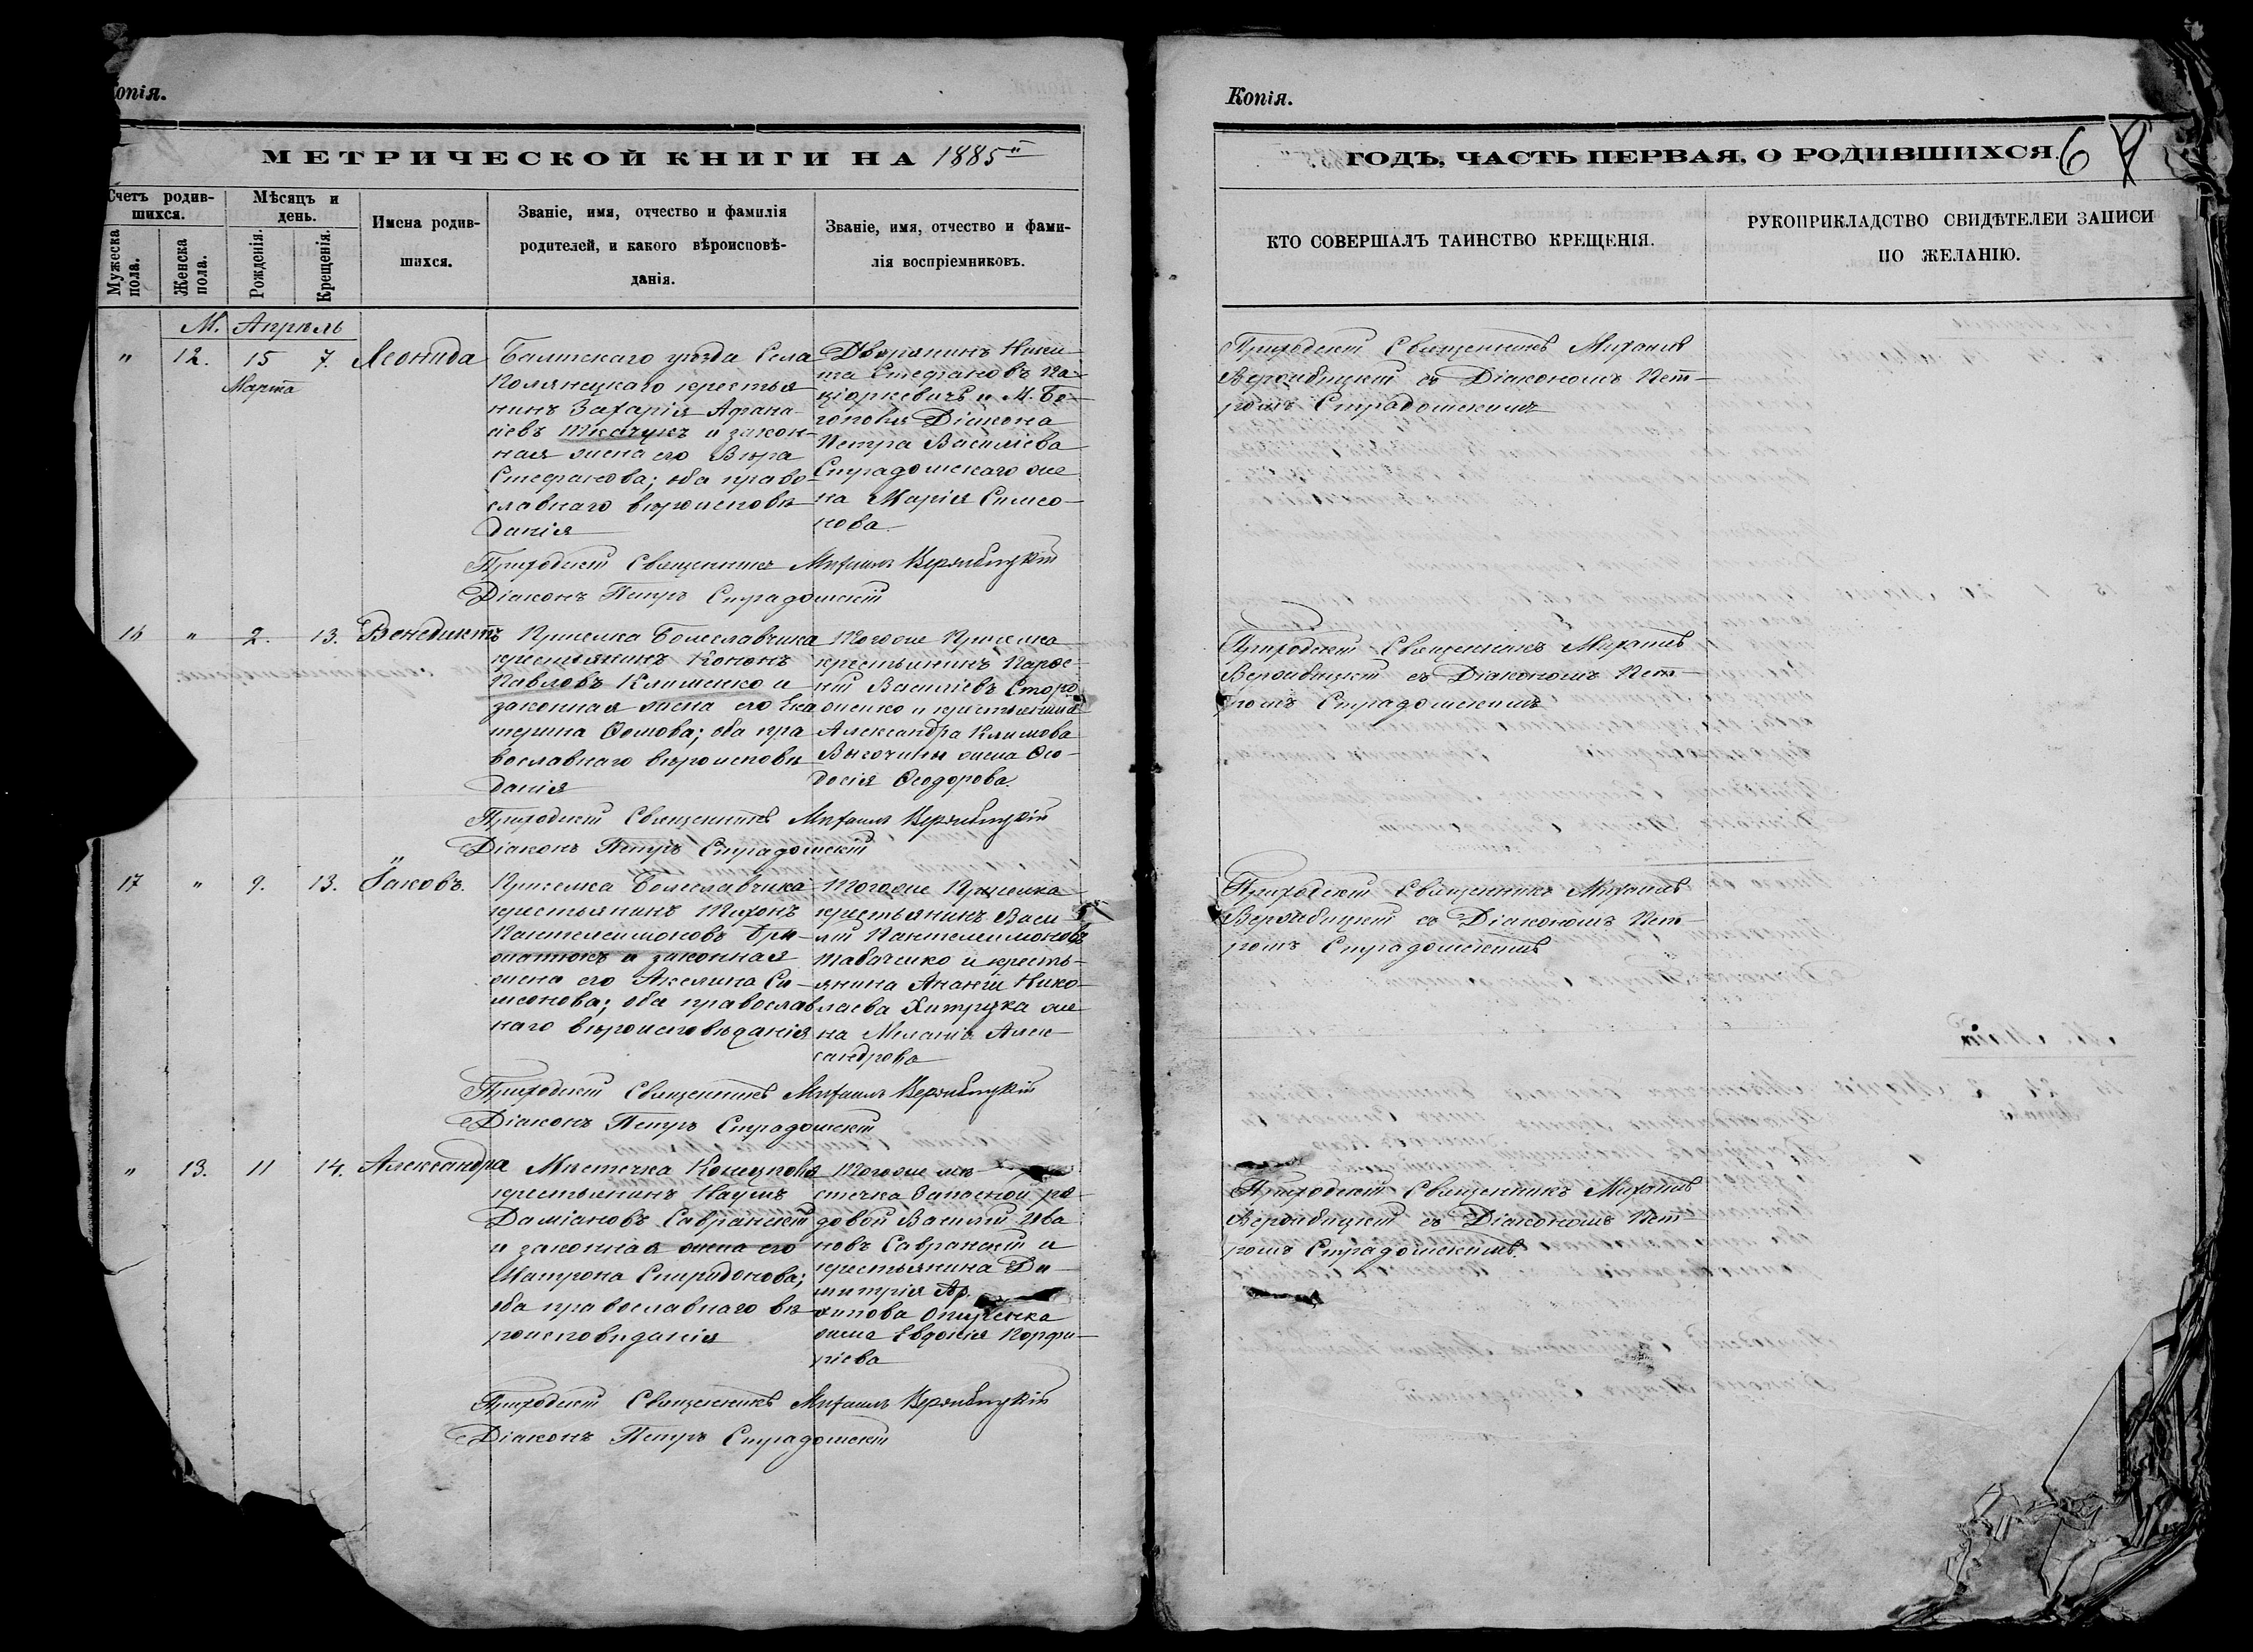 Копія.
МЕТРИЧЕСКОЙ КНИГИ НА 1885й
Счетъ родившихся.
Мужеска пола.
Женска пола.
Мѣсяцъ и день.
Рожденія.
Крещенія.
Имена родившихся.
Званіе, имя, отчество и фамилія
родителей, и какого вѣроисповѣ-
данія.
Званіе, имя, отчество и фами-
лія воспріемниковъ.
М. Апрѣль
" 12. 15 Марта 7. Леонида
Балтскаго уѣзда Села
крестья
нинъ Захарія Афана-
сіевъ Ткачукъ и закон-
ная жена его Вѣра
Стефанова; оба право-
славнаго вѣроисповѣ
данія
Дворянинъ Ники-
та Стефановъ
и М. Бо-
гополя Діакона
Петра Василіева
Страдомскаго же
на Марія Симео-
нова.
Приходскій Священникъ Михаилъ Вержбицкій
Діаконъ Петръ Страдомскій
16 " 2. 13. Венедиктъ
Приселка Болеславчика
крестьянинъ Кононъ
Павловъ Клименко и
законная жена его Ека
терина Ѳомова; оба пра
вославнаго вѣроисповѣ
данія
Тогоже Приселка
крестьянинъ Парѳе-
ній Василіевъ Сторо
женко и крестьянина
Александра Климова
Высочина жена Ѳео-
досія Ѳеодорова.
Приходскій Священникъ Михаилъ Вержбицкій
Діаконъ Петръ Страдомскій
17 " 9. 13. Іаковъ.
Приселка Болеславчика
крестьянинъ Тихонъ
Пантелеимоновъ
и законная
жена его Акилина Си-
меонова; оба православ
наго вѣроисповѣданія
Тогоже Приселка
крестьянинъ Васи-
лій Пантелеимоновъ
Табаченко и кресть-
янина Ананіи Нико-
лаева Хитрука же
на Меланія Алек-
сандрова
Приходскій Священникъ Михаилъ Вержбицкій
Діаконъ Петръ Страдомскій
" 13. 11 14. Александра
Мѣстечка Конецполя
крестьянинъ Наумъ
Даміановъ Савранскій
и законная жена его
Матрона Спиридонова;
оба православнаго вѣ
роисповѣданія
Тогоже мѣ-
стечка запасной ря-
довой Василій Ива
новъ Савранскій и
крестьянина Ди-
митрія Ар.
хипова
жена Евдокія Порфи-
ріева
Приходскій Священникъ Михаилъ Вержбицкій
Діаконъ Петръ Страдомскій
Копія.
ГОДЪ, ЧАСТЬ ПЕРВАЯ, О РОДИВШИХСЯ. 6
КТО СОВЕРШАЛЪ ТАИНСТВО КРЕЩЕНІЯ.
РУКОПРИКЛАДСТВО СВИДѢТЕЛЕЙ ЗАПИСИ
ПО ЖЕЛАНІЮ.
Приходскій Священникъ Михаилъ
Вержбицкій съ Діакономъ Пет-
ромъ Страдомскимъ
Приходскій Священникъ Михаилъ
Вержбицкій съ Діакономъ Пет-
ромъ Страдомскимъ
Приходскій Священникъ Михаилъ
Вержбицкій съ Діакономъ Пет-
ромъ Страдомскимъ
Приходскій Священникъ Михаилъ
Вержбицкій съ Діакономъ Пет-
ромъ Страдомскимъ.